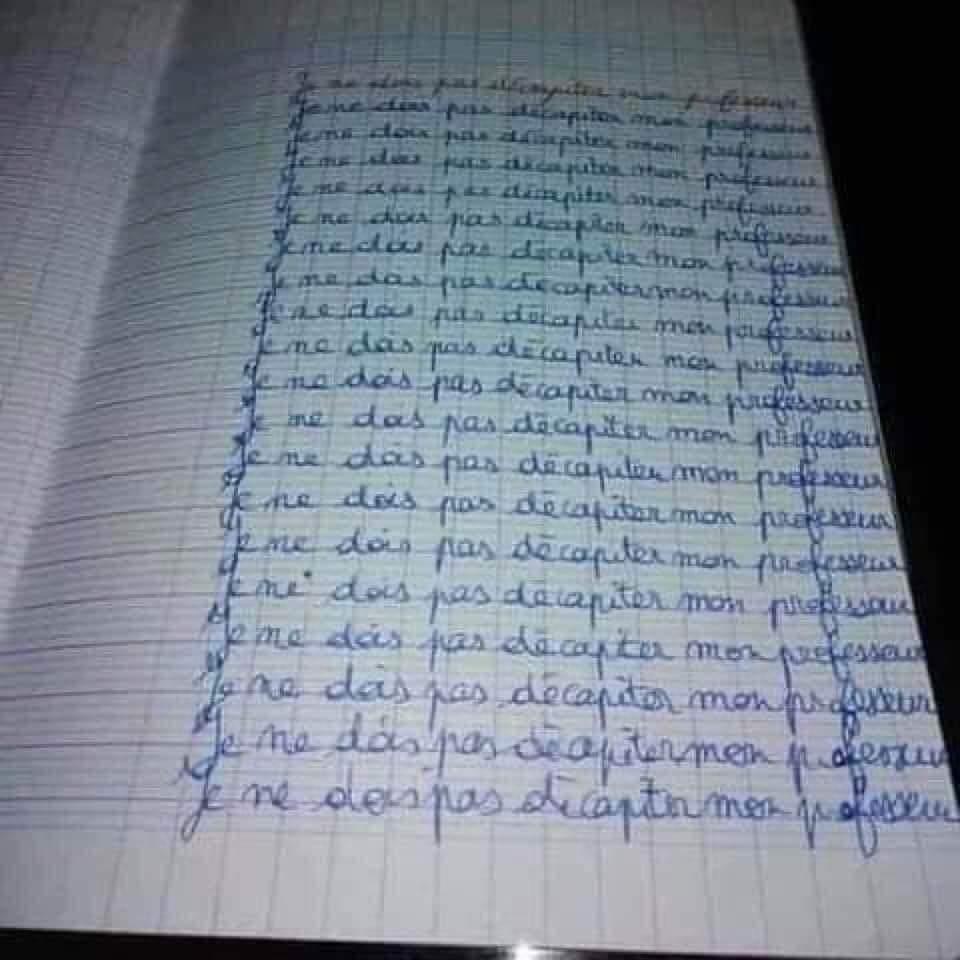 Je ne dois pas décapiter mon professeur
Je ne dois pas décapiter mon professeur
Je ne dois pas décapiter mon professeur
Je ne dois pas décapiter mon professeur
Je ne dois pas décapiter mon professeur
Je ne dois pas décapiter mon professeur
Je ne dois pas décapiter mon professeur
Je ne dois pas décapiter mon professeur
Je ne dois pas décapiter mon professeur
Je ne dois pas décapiter mon professeur
Je ne dois pas décapiter mon professeur
Je ne dois pas décapiter mon professeur
Je ne dois pas décapiter mon professeur
Je ne dois pas décapiter mon professeur
Je ne dois pas décapiter mon professeur
Je ne dois pas décapiter mon professeur
Je ne dois pas décapiter mon professeur
Je ne dois pas décapiter mon professeur
Je ne dois pas décapiter mon professeur
Je ne dois pas décapiter mon professeur